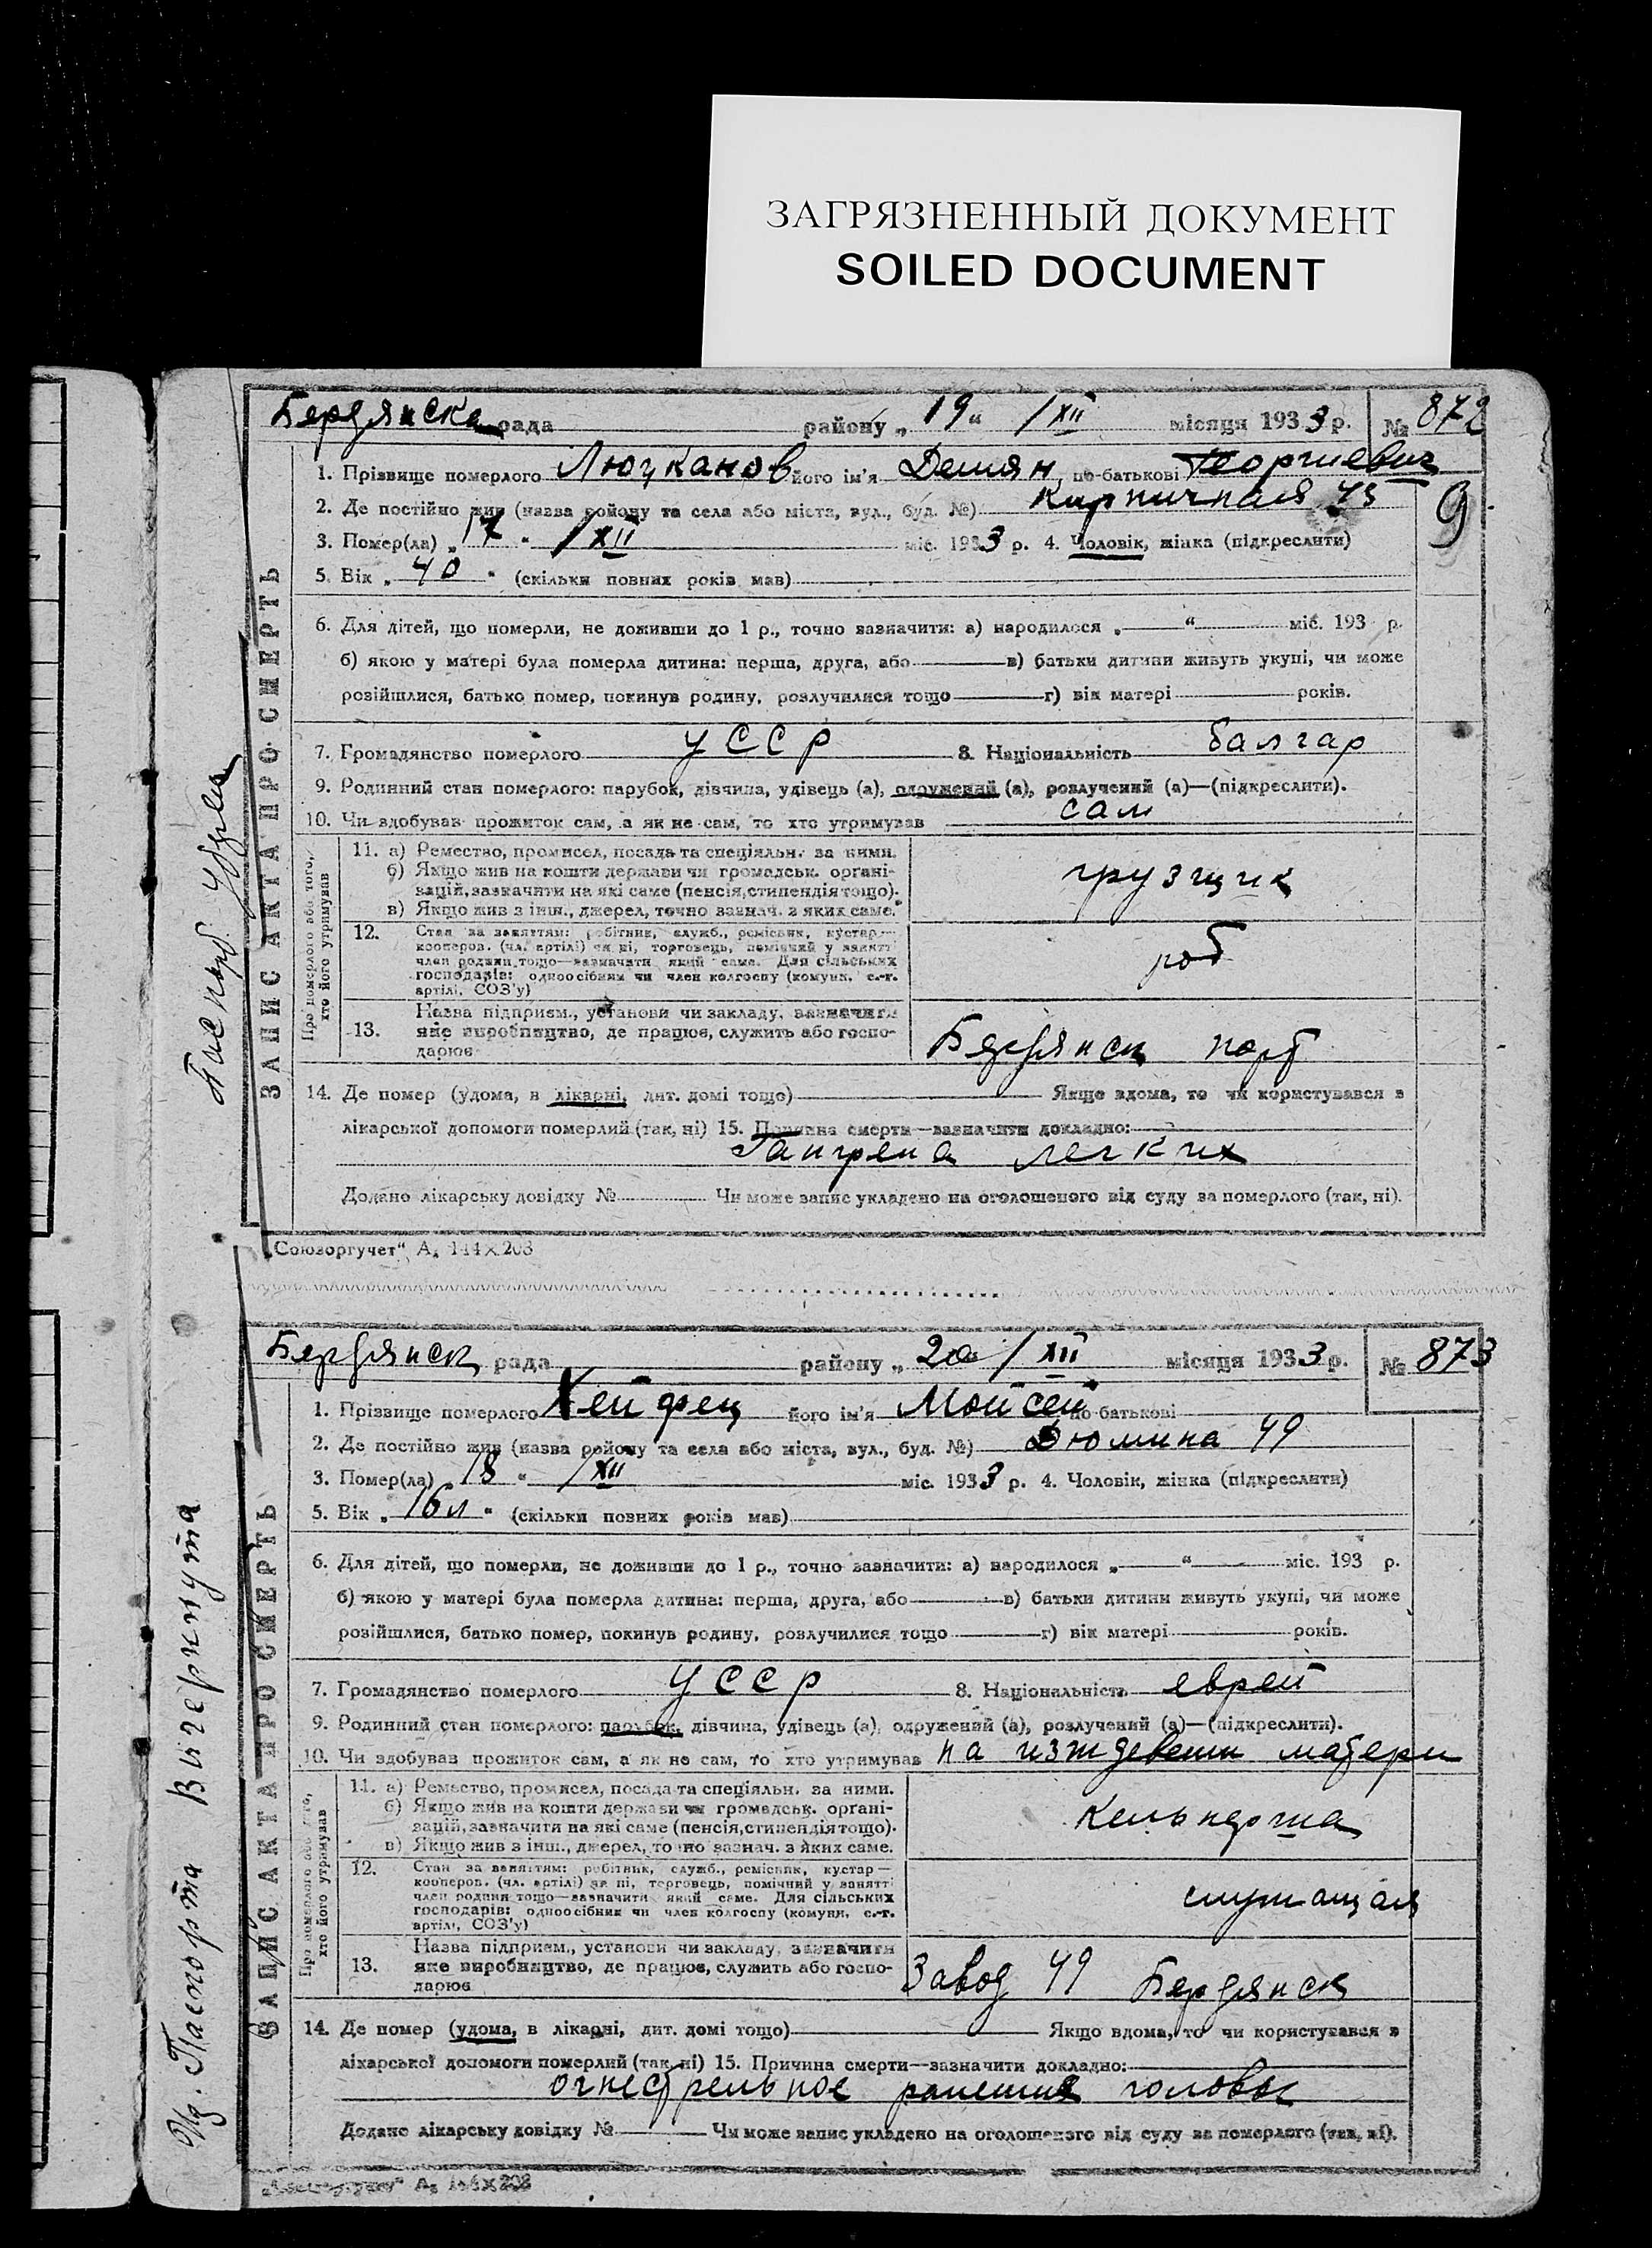 ЗАГРЯЗНЕННЫЙ ДОКУМЕНТ
SOILED DOCUMENT
Бердянска рада району „19“ /XII місяця 1933 р. № 872
1. Прізвище померлого Люцканов його ім'я Демян, по-батькові Георгиевич
2. Де постійно жив (назва району та села або міста, вул., буд. №) Кирпичная 43
9
3. Помер(ла) „17“ /XII міс. 1933 р. 4. Чоловік, жінка (підкреслити)
5. Вік „40“ (скільки повних років мав)
6. Для дітей, що померли, не доживши до 1 р., точно зазначити: а) народилося „ “ міс. 193 р.
б) якою у матері була померла дитина: перша, друга, або в) батьки дитини живуть укупі, чи може
розійшлися, батько помер, покинув родину, розлучилися тощо г) вік матері років.
7. Громадянство померлого УССР 8. Національність балгар
9. Родинний стан померлого: парубок, дівчина, удівець (а), одружений (а), розлучений (а)—(підкреслити).
10. Чи здобував прожиток сам, а як не сам, то хто утримував сам
ЗАПИС АКТА ПРО СМЕРТЬ
Про померлого або того, хто його утримував
11. а) Ремество, промисел, посада та спеціяльн. за ними.
б) Якщо жив на кошти держави чи громадськ. органі-
зацій, зазначити на які саме (пенсія, стипендія тощо).
в) Якщо жив з інш., джерел, точно зазнач. з яких саме.
грузщик
12. Стан за заняттям: робітник, служб., ремісник, кустар—
кооперов. (чл. артілі) чи ні, торговець, помічний у занятті
член родини тощо—зазначити який саме. Для сільських
господарів: одноосібник чи член колгоспу (комуни, с.-г.
артілі, СОЗ'у)
роб
13. Назва підприєм., установи чи закладу, зазначити
яке виробництво, де працює, служить або госпо-
дарює
Бердянск порт
14. Де помер (удома, в лікарні, дит. домі тощо) Якщо вдома, то чи користувався з
лікарської допомоги померлий (так, ні) 15. Причина смерти—зазначити докладно:
Гангрена легких
Додано лікарську довідку № Чи може запис укладено на оголошеного від суду за померлого (так, ні).
„Союзоргучет“ А₅ 144×208
Бердянск рада району „20“ /XII місяця 1933 р. № 873
1. Прізвище померлого Хейфец його ім'я Мойсей по-батькові
2. Де постійно жив (назва району та села або міста, вул., буд. №) Дюмина 49
3. Помер(ла) „18“ /XII міс. 1933 р. 4. Чоловік, жінка (підкреслити)
5. Вік „16 л“ (скільки повних років мав)
6. Для дітей, що померли, не доживши до 1 р., точно зазначити: а) народилося „ “ міс. 193 р.
б) якою у матері була померла дитина: перша, друга, або в) батьки дитини живуть укупі, чи може
розійшлися, батько помер, покинув родину, розлучилися тощо г) вік матері років.
7. Громадянство померлого УССР 8. Національність еврей
9. Родинний стан померлого: парубок, дівчина, удівець (а), одружений (а), розлучений (а)—(підкреслити).
10. Чи здобував прожиток сам, а як не сам, то хто утримував на изждевении матери
ЗАПИС АКТА ПРО СМЕРТЬ
Про померлого або того, хто його утримував
11. а) Ремество, промисел, посада та спеціяльн. за ними.
б) Якщо жив на кошти держави чи громадськ. органі-
зацій, зазначити на які саме (пенсія, стипендія тощо).
в) Якщо жив з інш., джерел, точно зазнач. з яких саме.
кельнерша
12. Стан за заняттям: робітник, служб., ремісник, кустар—
кооперов. (чл. артілі) чи ні, торговець, помічний у занятті
член родини тощо—зазначити який саме. Для сільських
господарів: одноосібник чи член колгоспу (комуни, с.-г.
артілі, СОЗ'у)
служащая
13. Назва підприєм., установи чи закладу, зазначити
яке виробництво, де працює, служить або госпо-
дарює
Завод 49 Бердянск
14. Де помер (удома, в лікарні, дит. домі тощо) Якщо вдома, то чи користувався з
лікарської допомоги померлий (так, ні) 15. Причина смерти—зазначити докладно:
огнестрельное ранение головы
Додано лікарську довідку № Чи може запис укладено на оголошеного від суду за померлого (так, ні).
„Союзоргучет“ А₅ 144×208
Паспорта